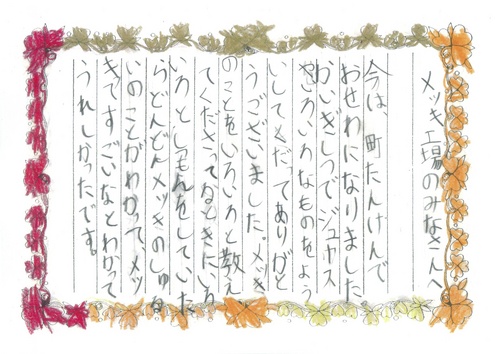 メッキ工場のみなさんへ
今は、町たんけんで
おせわになりました
かいぎしつでジュース
やいろいろなものをよう
いしてくださってありがと
うございました。メッキ
のことをいろいろと教え
てくださってるときにいろ
いろとしつもんをしていた
らどんどんメッキのしゅる
いのことがわかって、メッ
キですごいなとわかって
うれしかったです。